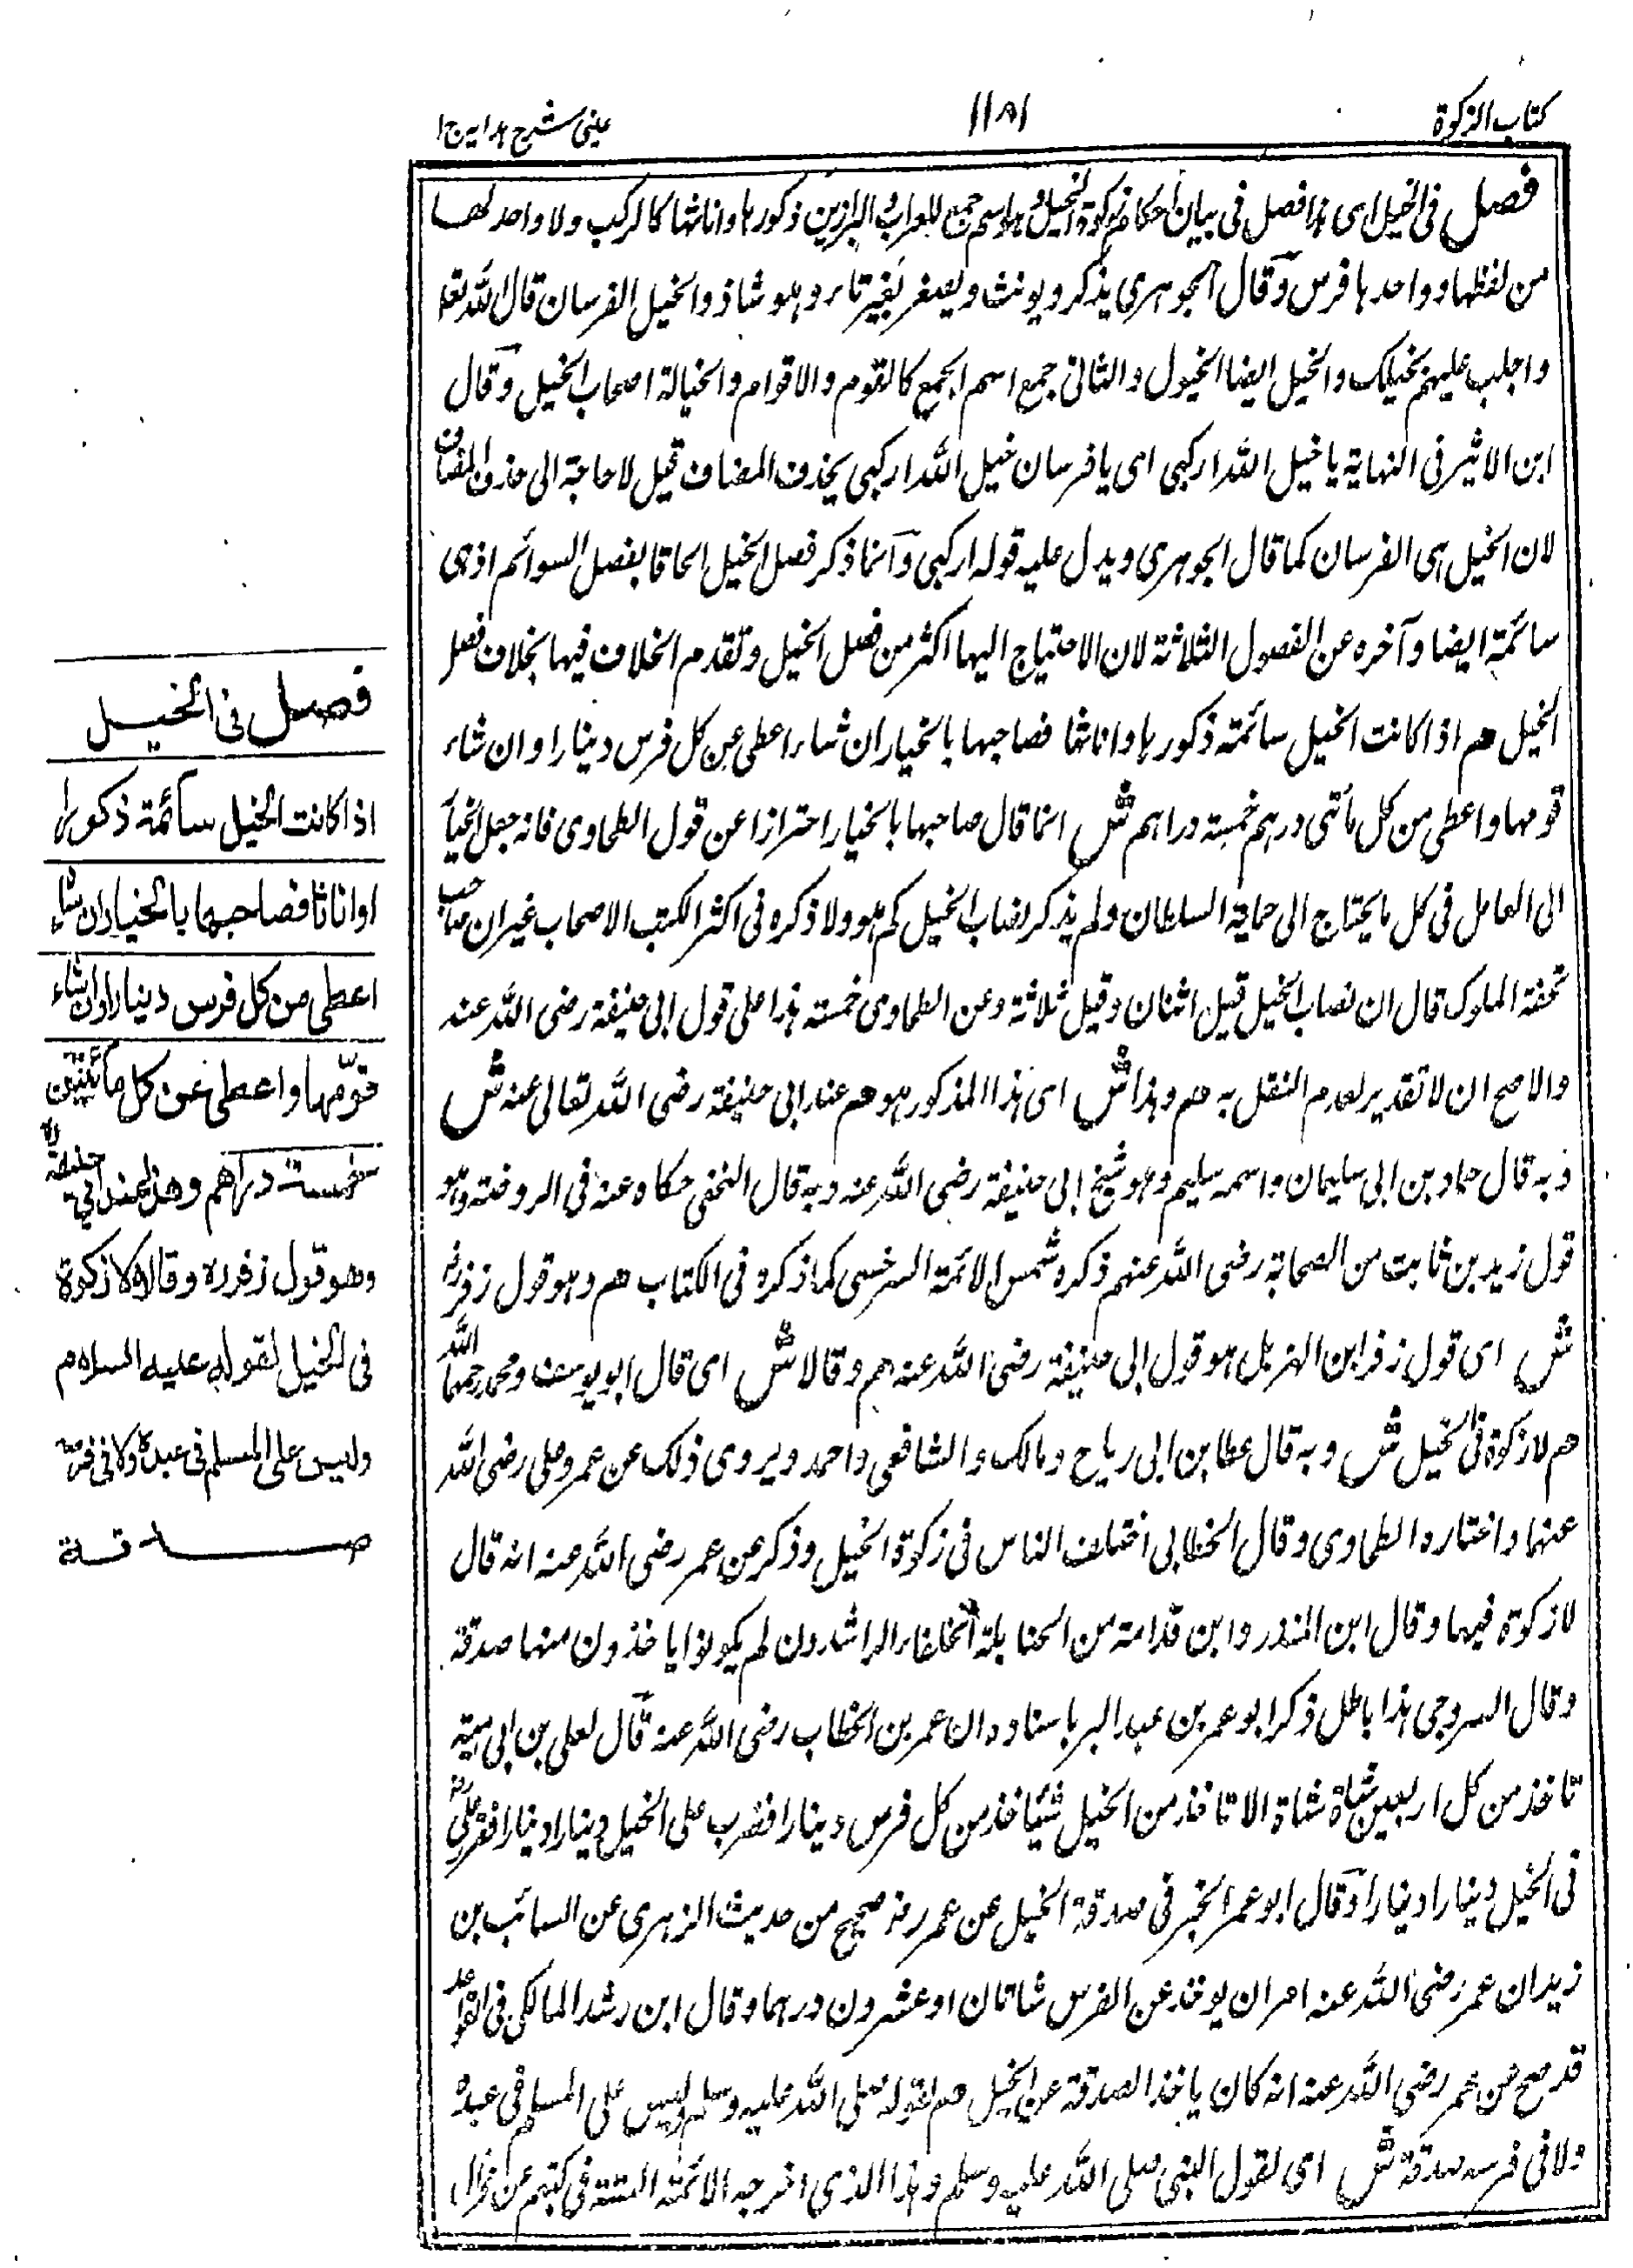 كتاب الزكوة
١١٨١
عینی شرح هدایہ ج ١
فصل فى الخيل اى هذا فصل فى بيان احكام زكوة الخيل وهو اسم جمع للعراب والبراذين ذكورها واناثها كالركب ولا واحد لها
من لفظها وواحدها فرس وقال الجوهرى يذكر ويونث ويصغر بغير تاء وهو شاذ والخيل الفرسان قال الله تعا
واجلب عليهم بخيلك والخيل ايضا الخيول والثانى جمع اسم الجمع كالقوم والاقوام والخيالة اصحاب الخيل وقال
ابن الاثير فى النهاية يا خيل الله اركبى اى يا فرسان خيل الله اركبى بحذف المضاف قيل لا حاجة الى حذف المضاف
لان الخيل هى الفرسان كما قال الجوهرى ويدل عليه قوله اركبى وانما ذكر فصل الخيل الحاقا بفصل السوائم اذ هى
سائمة ايضا وآخره عن الفصول الثلاثة لان الاحتياج اليها اكثر من فصل الخيل وتقدم الخلاف فيها بخلاف فصل
الخيل هم اذا كانت الخيل سائمة ذكورها واناثها فصاحبها بالخيار ان شاء اعطى عن كل فرس دينارا وان شاء
قومها واعطى من كل مأتى درهم خمسة دراهم ش انما قال صاحبها بالخيار احترازا عن قول الطحاوى فانه جعل الخيار
الى العامل فى كل ما يحتاج الى حماية السلطان ولم يذكر نصاب الخيل كم هو ولا ذكره فى اكثر الكتب الاصحاب غير ان صاحب
تحفة الملوك قال ان نصاب الخيل قيل اثنان وقيل ثلاثة وعن الطحاوى خمسة هذا على قول ابى حنيفة رضى الله عنه
والاصح ان لا تقدير لعدم النقل به هم وهذا ش اى هذا المذكور هو هم عند ابى حنيفة رضى الله تعالى عنه ش
وبه قال حماد بن ابى سليمان واسمه سليم وهو شيخ ابى حنيفة رضى الله عنه وبه قال النخعى حكاه عنه فى الروضة وهو
قول زيد بن ثابت من الصحابة رضى الله عنهم ذكره شمس الائمة السرخسى كما ذكره فى الكتاب هم وهو قول زفر رح
ش اى قول زفر ابن الهزيل هو قول ابى حنيفة رضى الله عنه هم وقالا ش اى قال ابو يوسف ومحمد رحمهما الله
هم لا زكوة فى الخيل ش وبه قال عطا بن ابى رباح ومالك والشافعى واحمد ويروى ذلك عن عمر وعلى رضى الله
عنهما واختاره الطحاوى وقال الخطابى اختلف الناس فى زكوة الخيل وذكر عن عمر رضى الله عنه انه قال
لا زكوة فيها وقال ابن المنذر وابن قدامة من الحنابلة الخلفاء الراشدون لم يكونوا ياخذون منها صدقة
وقال السروجى هذا باطل ذكر ابو عمر بن عبد البر باسناده ان عمر بن الخطاب رضى الله عنه قال لعلى بن ابى مية
تاخذ من كل اربعين شاة شاة الا تاخذ من الخيل شيئا خذ من كل فرس دينارا فضرب على الخيل دينارا دينارا فقرر على
فى الخيل دينارا دينارا وقال ابو عمر الخبر فى صدقة الخيل عن عمر رض صحيح من حديث الزهرى عن السائب بن
زيد ان عمر رضى الله عنه امر ان يوخذ عن الفرس شاتان او عشرون درهما وقال ابن رشد المالكى فى القواعد
قد صح عن عمر رضى الله عنه انه كان ياخذ الصدقة عن الخيل هم لقوله صلى الله عليه وسلم ليس على المسلم فى عبده
ولا فى فرسه صدقة ش اى لقول النبى صلى الله عليه وسلم وهذا الذى اخرجه الائمة الستة فى كتبهم عن
فصل فى الخيل
اذا كانت الخيل سائمة ذكورا
او اناثا فصاحبها بالخيار ان شاء
اعطى من كل فرس دينارا وان شاء
قوّمها واعطى عن كل مائتين
خمسة دراهم وهذا عند ابي حنيفة رح
وهو قول زفر ره وقالا لا زكوة
فى الخيل لقوله عليه السلام
وليس على المسلم فى عبده ولا فى فرسه
صدقة